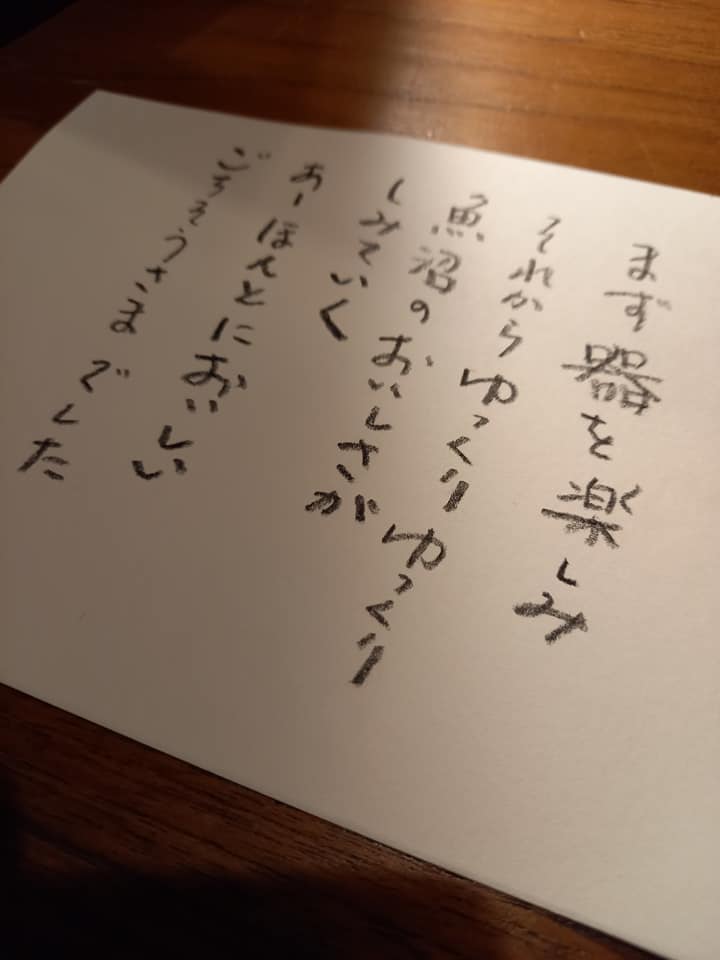 まず器を楽しみ
それからゆっくりゆっくり
魚沼のおいしさが
しみていく
あーほんとにおいしい
ごちそうさまでした